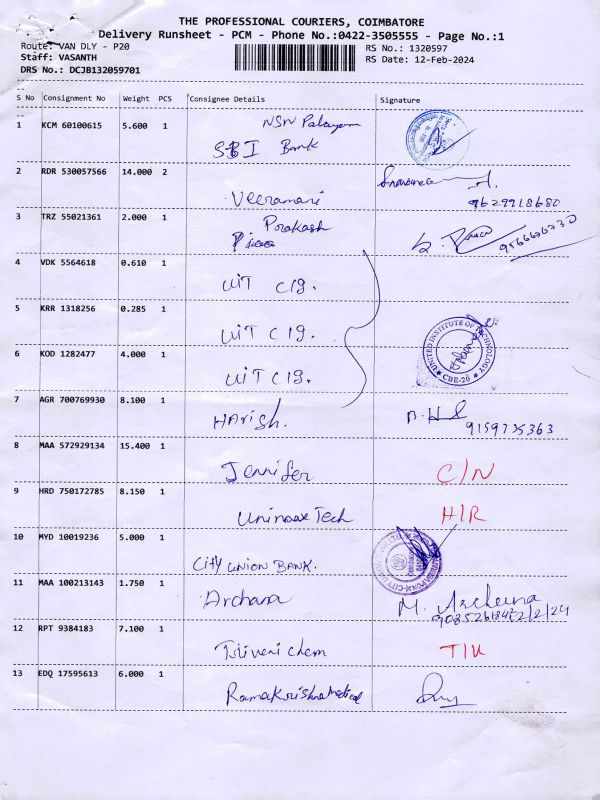 THE PROFESSIONAL COURIERS, COIMBATORE
Delivery Runsheet - PCM - Phone No.:0422-3505555 - Page No.:1
Route: VAN DLY - P20
RS No.: 1320597
Staff: VASANTH
RS Date: 12-Feb-2024
DRS No.: DCJB132059701
S No Consignment No Weight PCS Consignee Details Signature
1 KCM 60100615 5.600 1 NSN Palayam
SBI Bank
2 RDR 530057566 14.000 2
Veeramani 9629918680
3 TRZ 55021361 2.000 1 Prakash
9566626730
4 VDK 5564618 0.610 1
UIT Clg.
5 KRR 1318256 0.285 1
UIT Clg.
UNITED INSTITUTE OF TECHNOLOGY
CBE-20
6 KOD 1282477 4.000 1
UIT Clg.
7 AGR 700769930 8.100 1
Harish. 9159735363
8 MAA 572929134 15.400 1
Jennifer C/N
9 HRD 750172785 8.150 1
Uninoax Tech H/R
10 MYD 10019236 5.000 1
City Union Bank.
11 MAA 100213143 1.750 1
Archana M. Archana
12/2/24
12 RPT 9384183 7.100 1
Tsiveni chem
13 EDQ 17595613 6.000 1
Ramakrishna Medical